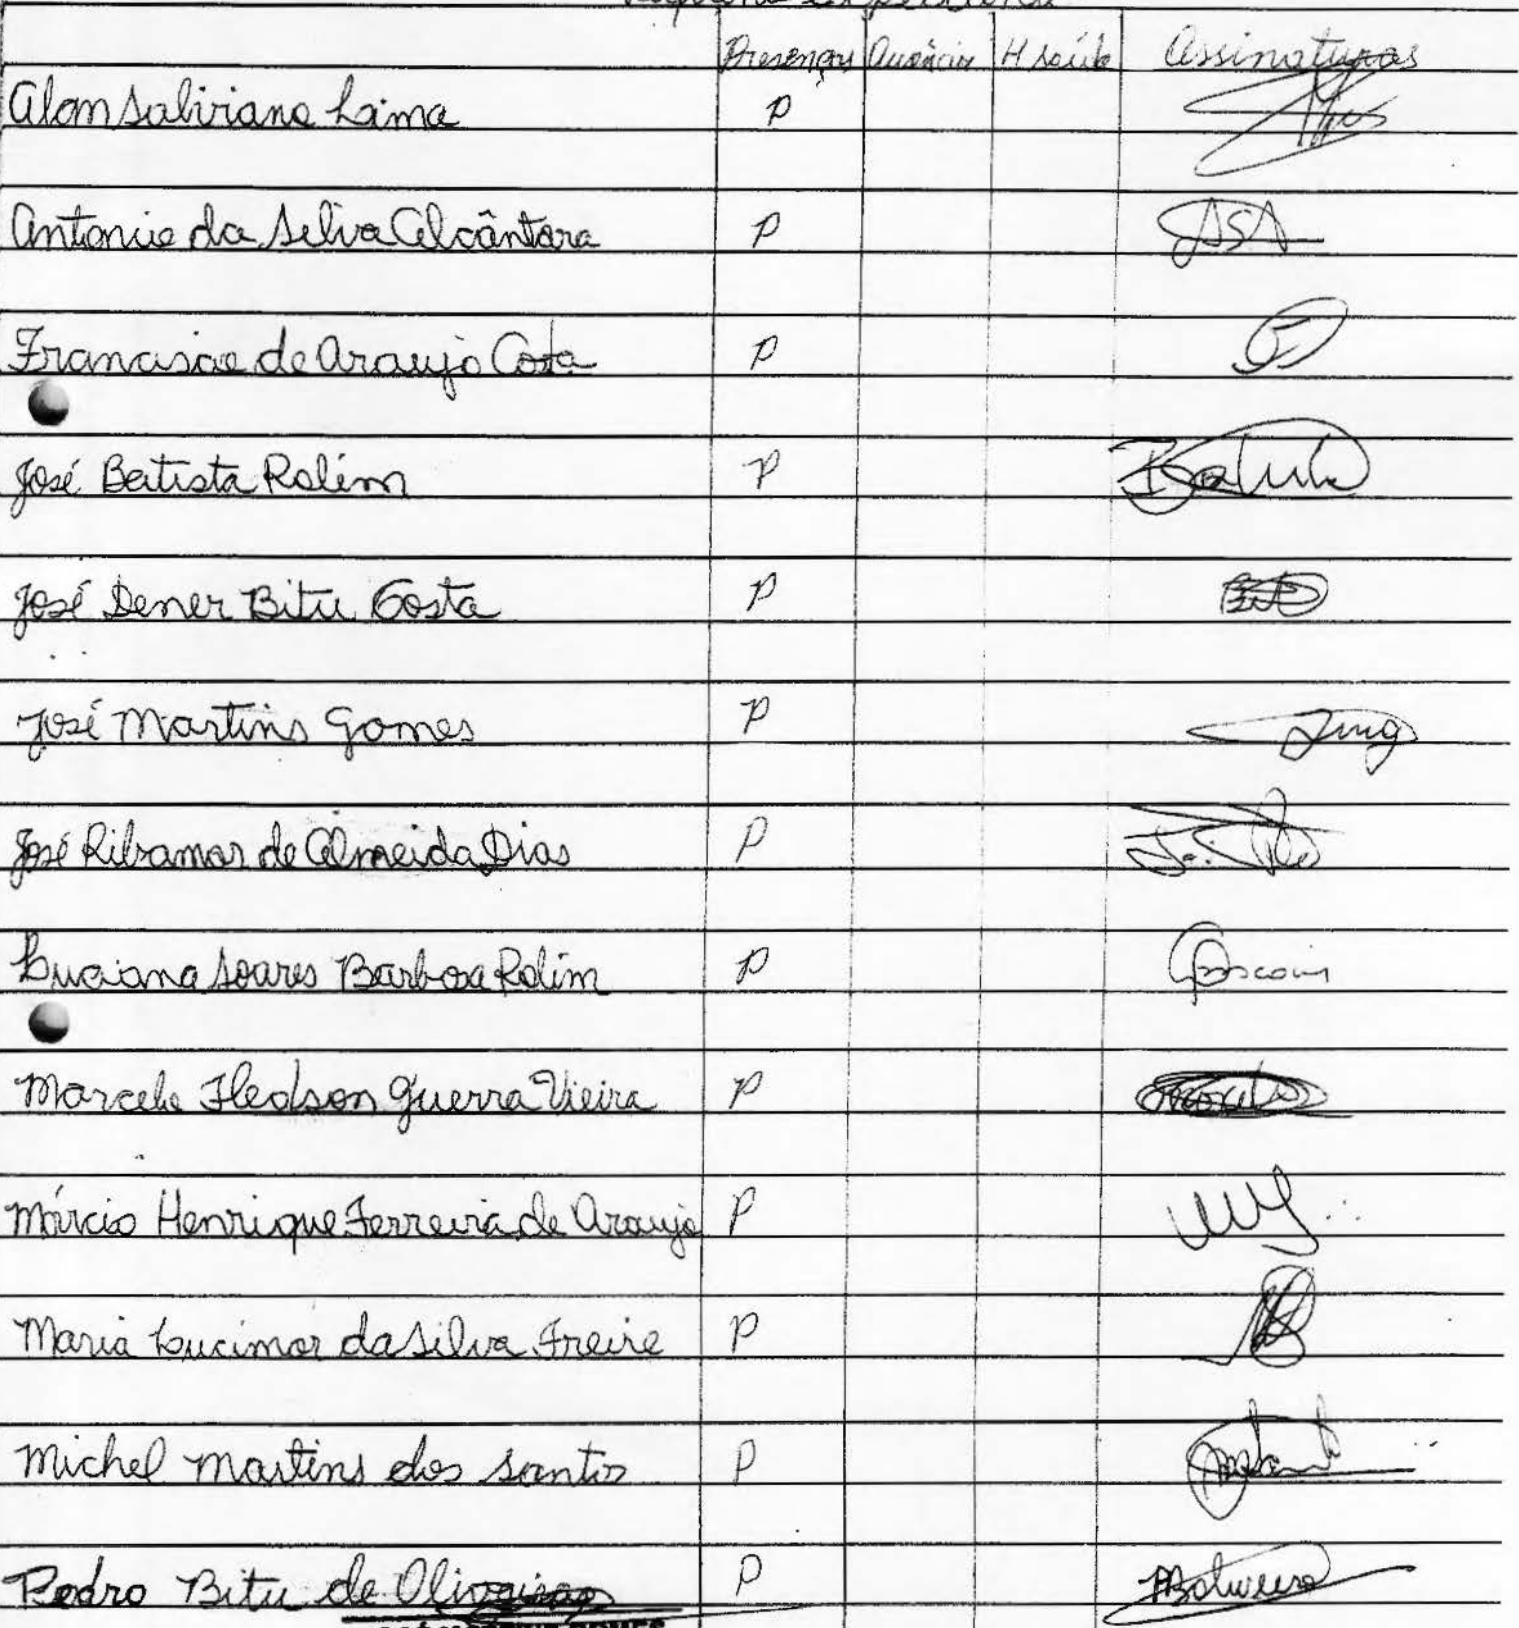 Pequeno expediente
Presenças Ausências H saída Assinaturas
Alan Saliviano Lima P
Antonio da Silva Alcântara P ASA
Francisco de Araujo Costa P
José Batista Rolim P
José Dener Bitu Costa P
José Martins Gomes P
José Ribamar de Almeida Dias P
Luciana Soares Barbosa Rolim P
Marcelo Fledson Guerra Vieira P
Márcio Henrique Ferreira de Araujo P
Maria Lucimar da Silva Freire P
Michel Martins dos Santos P
Pedro Bitu de Oliveira P